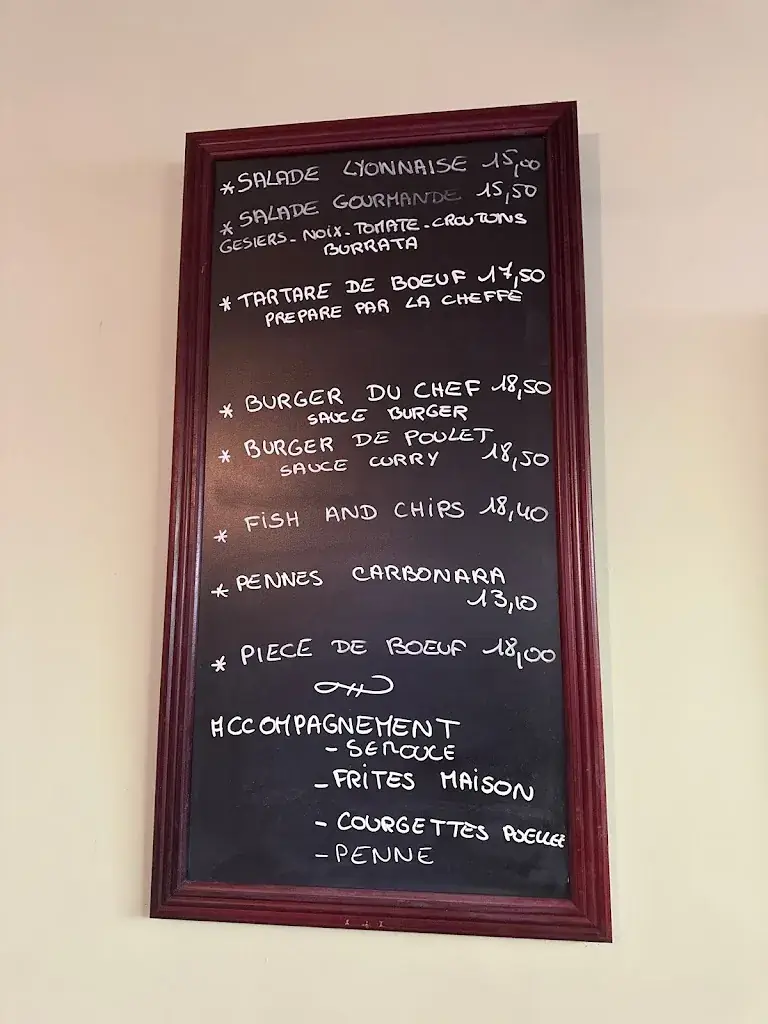 * SALADE LYONNAISE 15,00
* SALADE GOURMANDE 15,50
GESIERS - NOIX - TOMATE - CROUTONS
BURRATA
* TARTARE DE BOEUF 17,50
PREPARE PAR LA CHEFFE
* BURGER DU CHEF 18,50
SAUCE BURGER
* BURGER DE POULET
SAUCE CURRY 18,50
* FISH AND CHIPS 18,40
* PENNES CARBONARA
13,10
* PIECE DE BOEUF 18,00
ACCOMPAGNEMENT
- SEMOULE
- FRITES MAISON
- COURGETTES POELLEE
- PENNE